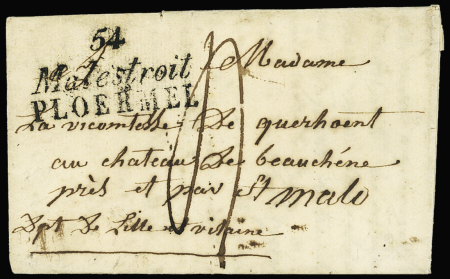 54
Malestroit
PLOERMEL
Madame
La vicomtesse De querhoent
au chateau De beauchéne
près et par St malo
Dpt De Lille et vilaine